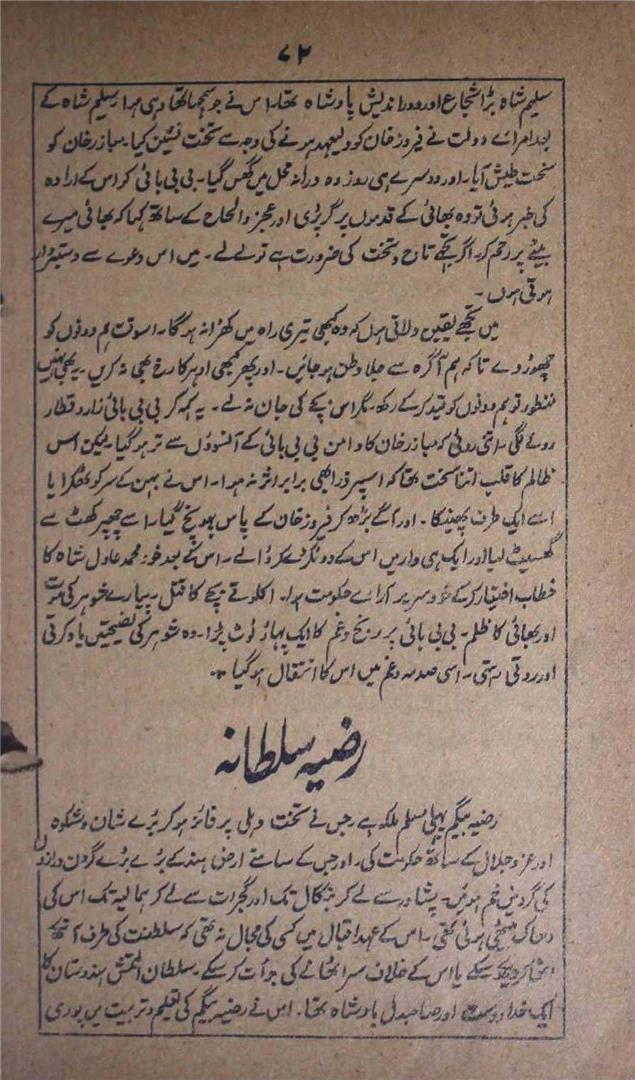 ۷۲
سلیم شاہ بڑا شجاع اور دور اندیش بادشاہ تھا۔ اس نے جو سمجھا تھا وہی ہوا۔ سلیم شاہ کے
بعد امرائے دولت نے فیروز خان کو ولیعہد ہونے کی وجہ سے تخت نشین کیا۔ مبازر خان کو
سخت طیش آیا۔ اور دوسرے ہی روز وہ درانہ محل میں گھس گیا۔ بی بی بائی کو اس کے ارادہ
کی خبر ہوئی تو وہ بھائی کے قدموں پر گر پڑی اور عجز و الحاح کے ساتھ کہا کہ بھائی میرے
بیٹے پر رحم کر۔ اگر تجھے تاج و تخت کی ضرورت ہے تو لے لے۔ میں اس دعوے سے دستبردار
ہوتی ہوں۔
میں تجھے یقین دلاتی ہوں کہ وہ کبھی تیری راہ میں کھڑا نہ ہوگا۔ اسوقت ہم دونوں کو
چھوڑ دے تاکہ ہم آگرہ سے جلا وطن ہو جائیں۔ اور پھر کبھی ادہر کا رخ بھی نہ کریں۔ یہ بھی نہیں
منظور تو ہم دونوں کو قید کر کے رکھ۔ مگر اس بچے کی جان نہ لے۔ یہ کہہ کر بی بی بائی زار و قطار
رونے لگی۔ اتنی روئی کہ مبازر خان کا دامن بی بی بائی کے آنسوؤں سے تر ہو گیا۔ لیکن اس
ظالم کا قلب اتنا سخت تھا کہ اسپر ذرا بھی برابر اثر نہ ہوا۔ اس نے بہن کے سر کو ٹھکرایا
اسے ایک طرف پھینکا۔ اور آگے بڑھ کر فیروز خان کے پاس پہونچ گیا۔ اسے چھپر کھٹ سے
گھسیٹ لیا اور ایک ہی وار میں اس کے دو ٹکڑے کر ڈالے۔ اس کے بعد خود محمد عادل شاہ کا
خطاب اختیار کر کے خود سریر آرائے حکومت ہوا۔ اکلوتے بچے کا قتل۔ پیارے شوہر کی موت
اور بھائی کا ظلم۔ بی بی بائی پر رنج و غم کا ایک پہاڑ ٹوٹ پڑا۔ وہ شوہر کی نصیحتیں یاد کرتی
اور روتی رہتی۔ اسی صدمہ و غم میں اس کا انتقال ہو گیا۔
رضیہ سلطانہ
رضیہ بیگم پہلی مسلم ملکہ ہے جس نے تخت دہلی پر فائز ہو کر بڑے شان و شکوہ
اور عز و جلال کے ساتھ حکومت کی۔ اور جس کے سامنے ارض ہند کے بڑے بڑے گردن والوں
کی گردنیں خم ہوئیں۔ پشاور سے لے کر بنگال تک اور گجرات سے لے کر ہمالیہ تک اس کی
دھاک بیٹھی ہوئی تھی۔ اس کے عہد اقبال میں کسی کی مجال نہ تھی کہ سلطنت کی طرف آنکھ
اٹھا کر دیکھ سکے یا اس کے خلاف سر اٹھانے کی جرأت کر سکے۔ سلطان التمش ہندوستان کا
ایک خدا دوست اور صاحبدل بادشاہ تھا۔ اس نے رضیہ بیگم کی تعلیم و تربیت میں پوری